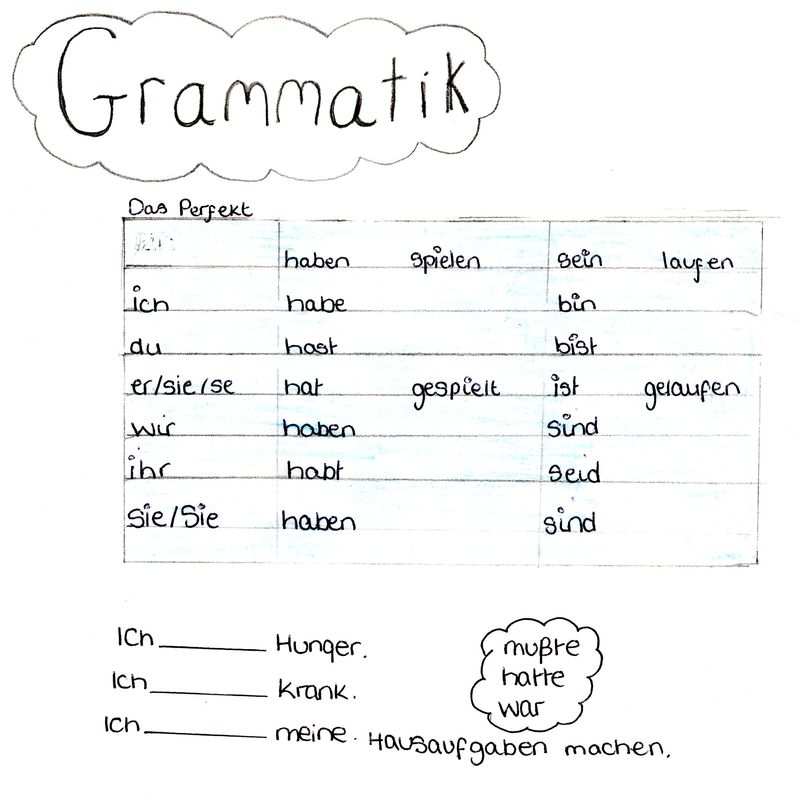 Grammatik
Das Perfekt
haben spielen sein laufen
ich habe bin
du hast bist
er/sie/se hat gespielt ist gelaufen
wir haben sind
ihr habt seid
sie/Sie haben sind
Ich ________ Hunger.
Ich ________ krank.
Ich ________ meine. Hausaufgaben machen.
mußte
hatte
war